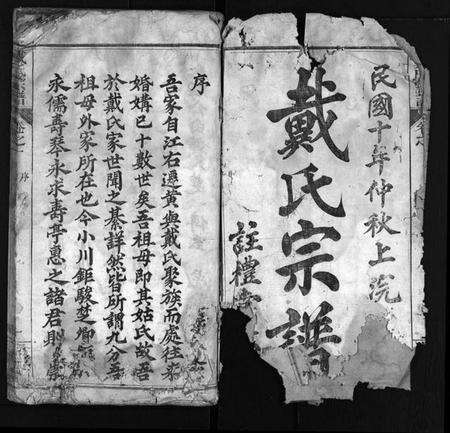 民國十年仲秋上浣
戴氏宗譜
註禮堂
序
吾家自江右遷黃與戴氏聚族而處往來
婚媾已十數世矣吾祖母即其姑氏故吾
於戴氏家世聞之綦詳然皆所謂九分吾
祖母外家所在也今小川鉅駿楚
永儒壽琴永求壽亭惠之諸君則